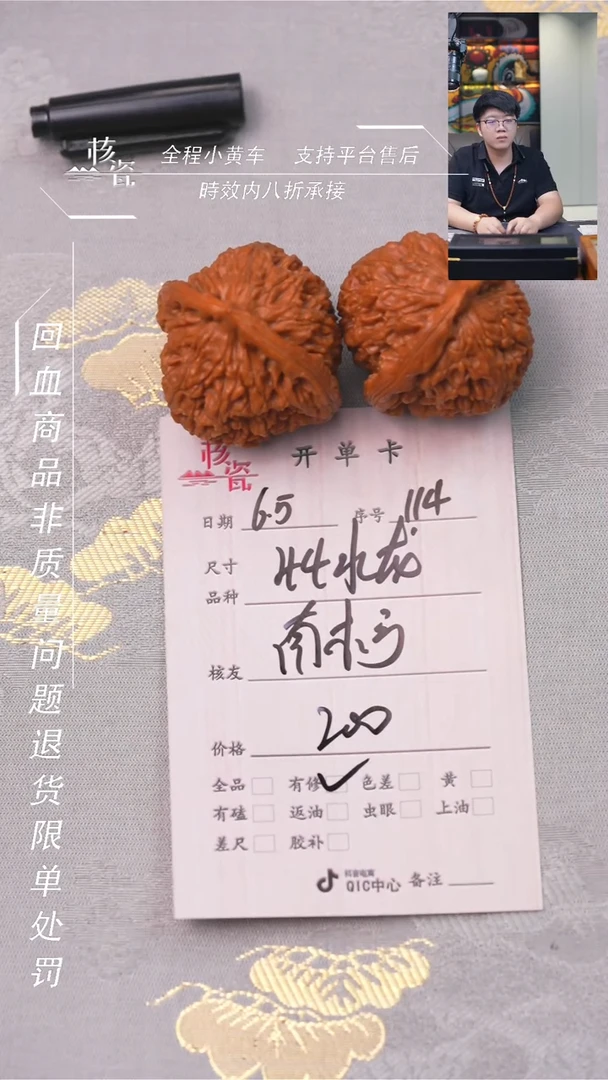 核瓷
全程小黄车 支持平台售后
時效内八折承接
回血商品非质量问题退货限单处罚
核瓷 开单卡
日期 6.5 序号 114
尺寸 44水龙
品种
核友 南
价格 200
全品 有修 ✓ 色差 黄
有磕 返油 虫眼 上油
差尺 胶补
抖音电商
QIC中心 备注